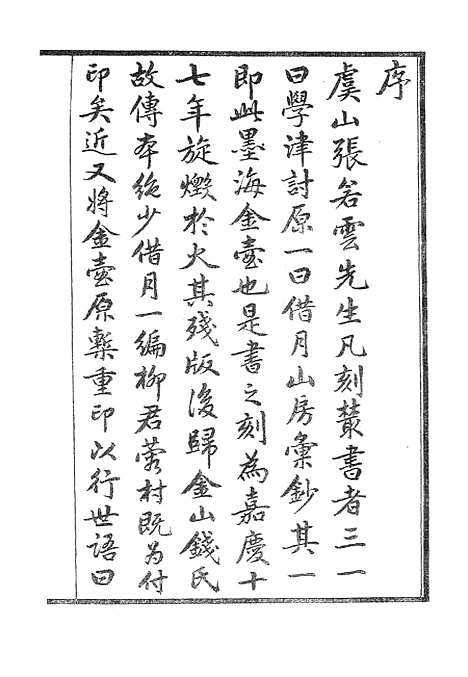 序
虞山張若雲先生凡刻叢書者三一
曰學津討原一曰借月山房彙鈔其一
即此墨海金壺也是書之刻為嘉慶十
七年旋燬於火其殘版後歸金山錢氏
故傳本絶少借月一編柳君蓉村既为付
印矣近又將金壺原槧重印以行世語曰